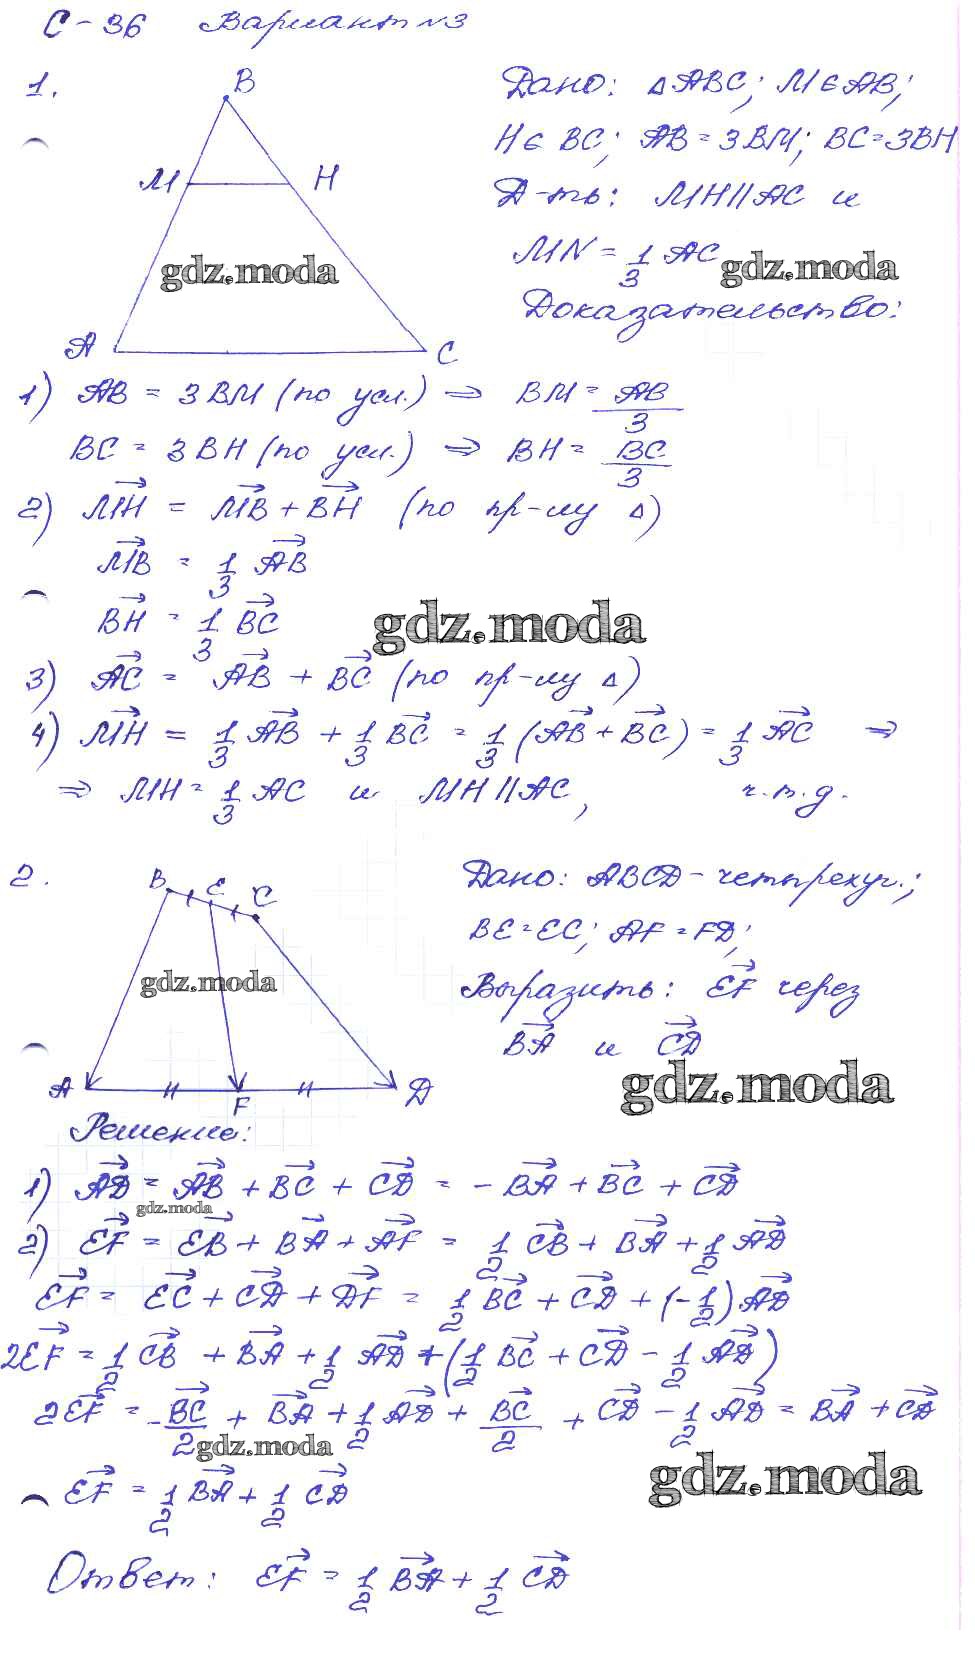 С-36 Вариант №3
1.
B
M
H
A
C
Дано: △ABC; M∈AB;
H∈BC; AB=3BM; BC=3BH
Д-ть: MH||AC и
MN = 1/3 AC
Доказательство:
gdz.moda
gdz.moda
1) AB = 3BM (по усл.) ⇒ BM = AB/3
BC = 3BH (по усл.) ⇒ BH = BC/3
2) →MH = →MB + →BH (по пр-лу △)
→MB = 1/3 →AB
→BH = 1/3 →BC
gdz.moda
3) →AC = →AB + →BC (по пр-лу △)
4) →MH = 1/3 →AB + 1/3 →BC = 1/3 (→AB + →BC) = 1/3 →AC ⇒
⇒ MH = 1/3 AC и MH||AC, ч.т.д.
2.
B
E
C
A
F
D
Дано: ABCD - четырехуг.;
BE=EC; AF=FD;
Выразить: →EF через
→BA и →CD
gdz.moda
gdz.moda
Решение:
1) →AD = →AB + →BC + →CD = - →BA + →BC + →CD
gdz.moda
2) →EF = →EB + →BA + →AF = 1/2 →CB + →BA + 1/2 →AD
→EF = →EC + →CD + →DF = 1/2 →BC + →CD + (-1/2) →AD
2→EF = 1/2 →CB + →BA + 1/2 →AD + (1/2 →BC + →CD - 1/2 →AD)
2→EF = - →BC/2 + →BA + 1/2 →AD + →BC/2 + →CD - 1/2 →AD = →BA + →CD
gdz.moda
gdz.moda
→EF = 1/2 →BA + 1/2 →CD
Ответ: →EF = 1/2 →BA + 1/2 →CD